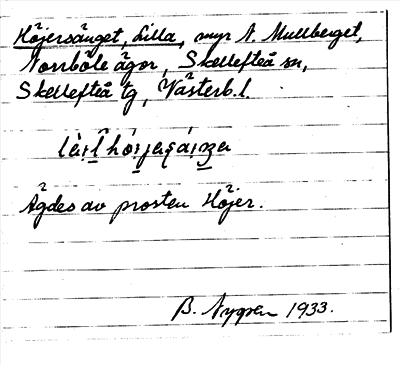 Höjersänget, Lilla, myr N. Mullberget,
Norrböle ägor, Skellefteå sn,
Skellefteå tg, Västerb.l.
Ägdes av prosten Höjer.
B. Nygren 1933.